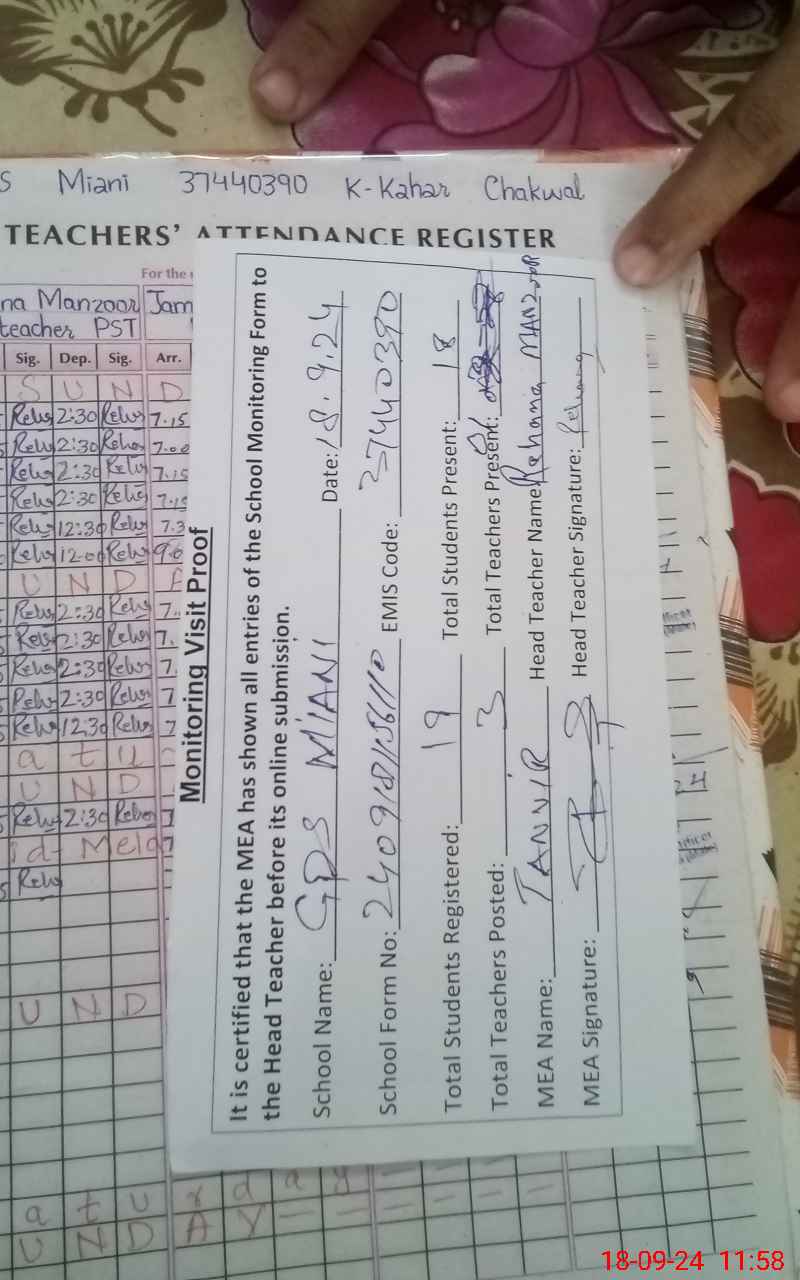 Miani 37440390 K-Kahar Chakwal
TEACHERS' ATTENDANCE REGISTER
For the
na Manzoor Jam
teacher PST
Sig. Dep. Sig. Arr.
S U N D
2:30 7.15
2:30 7.00
2:30 7.15
2:30 7.15
12:30 7.3
12.00 9.0
U N D
2:30 7.
2:30 7.
2:30 7.
2:30 7
12:30 7
a t u
U N D
2:30
id- Mela
U N D
a t u r d a y
U N D A Y
Monitoring Visit Proof
It is certified that the MEA has shown all entries of the School Monitoring Form to
the Head Teacher before its online submission.
School Name: GPS MIANI Date: 18.9.24
School Form No: EMIS Code: 37440390
Total Students Registered: 19 Total Students Present: 18
Total Teachers Posted: 3 Total Teachers Present:
MEA Name: TANVIR Head Teacher Name: Rehana MANZOOR
MEA Signature: Head Teacher Signature:
18-09-24 11:58